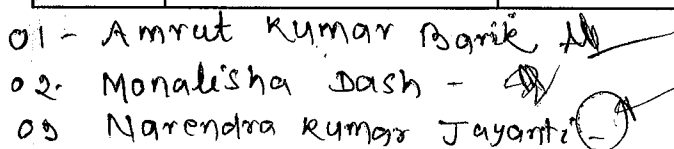 01 - Amrut Kumar Barik
02. Monalisha Dash -
03 Narendra Kumar Jayanti -